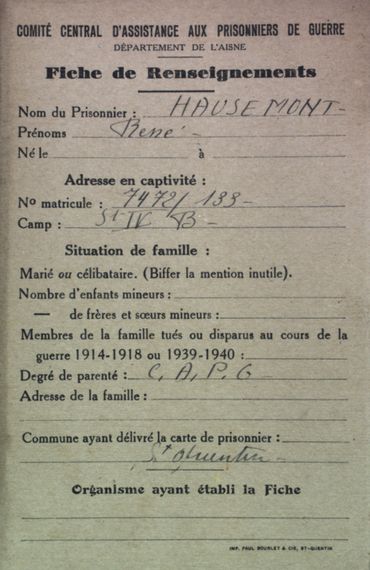 COMITÉ CENTRAL D'ASSISTANCE AUX PRISONNIERS DE GUERRE
DÉPARTEMENT DE L'AISNE
Fiche de Renseignements
Nom du Prisonnier : HAUSEMONT-
Prénoms René -
Né le à
Adresse en captivité :
No matricule : 7472/133-
Camp : St IV B -
Situation de famille :
Marié ou célibataire. (Biffer la mention inutile).
Nombre d'enfants mineurs :
— de frères et sœurs mineurs :
Membres de la famille tués ou disparus au cours de la
guerre 1914-1918 ou 1939-1940 :
Degré de parenté : C, A, P, G
Adresse de la famille :
Commune ayant délivré la carte de prisonnier :
St Quentin -
Organisme ayant établi la Fiche
IMP. PAUL BOURLET & CIE, ST-QUENTIN